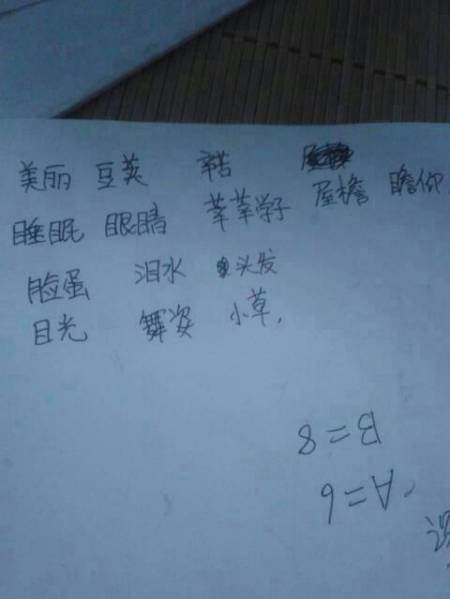 美丽 豆荚 辛苦
睡眠 眼睛 莘莘学子 屋檐 瞻仰
脸蛋 泪水 头发
目光 舞姿 小草,
B=8
A=6